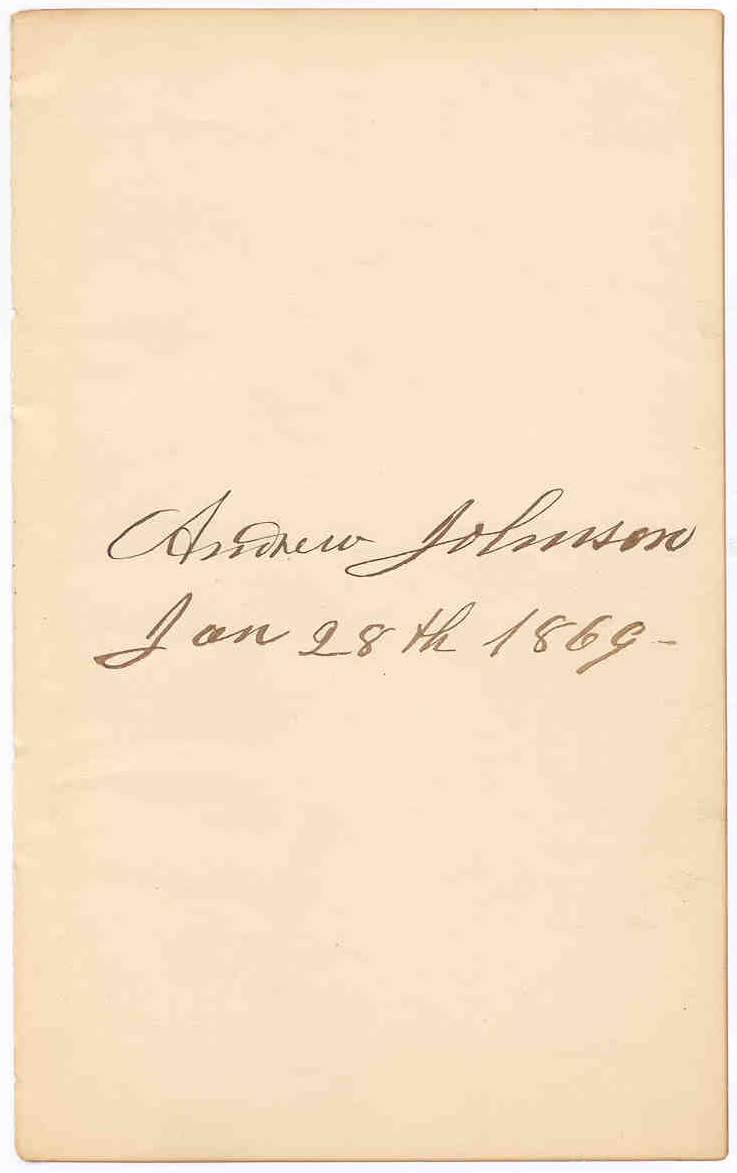 Andrew Johnson
Jan 28th 1869-